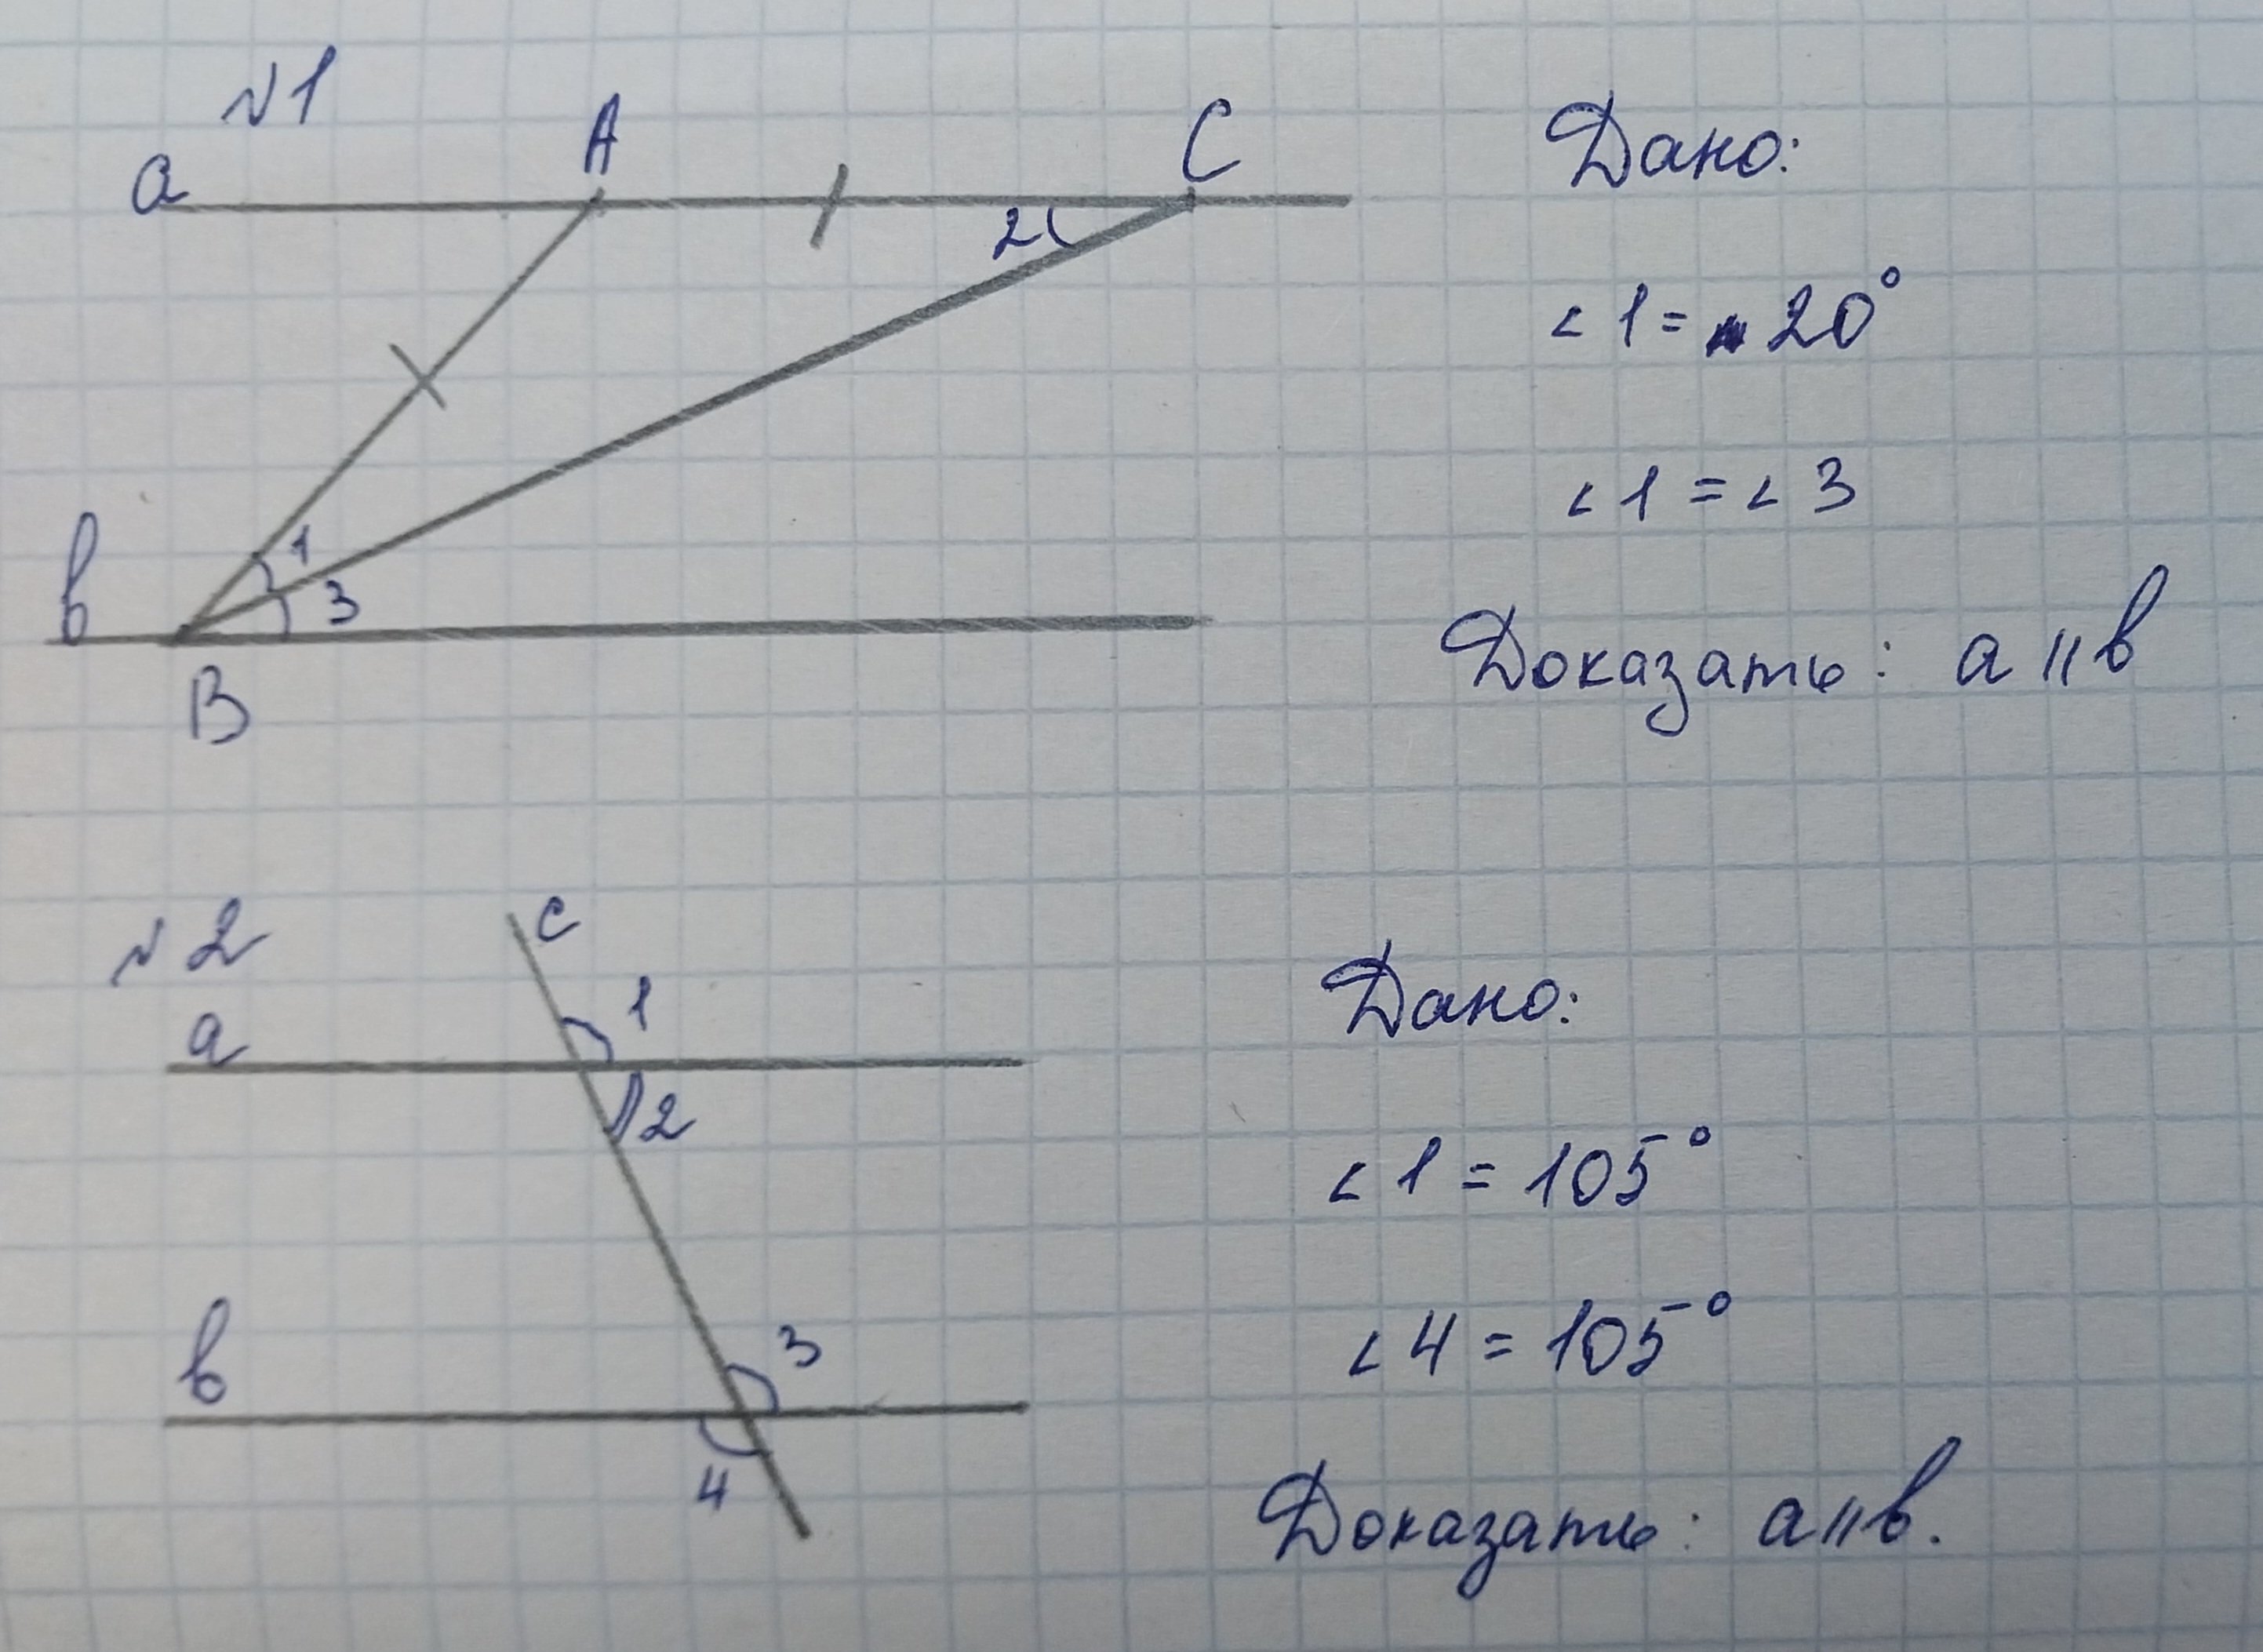 №1
a A C
2
1
3
в
B
Дано:
∠1 = 20°
∠1 = ∠3
Доказать: a || в
№2
c
1
a
2
3
в
4
Дано:
∠1 = 105°
∠4 = 105°
Доказать: a || в.